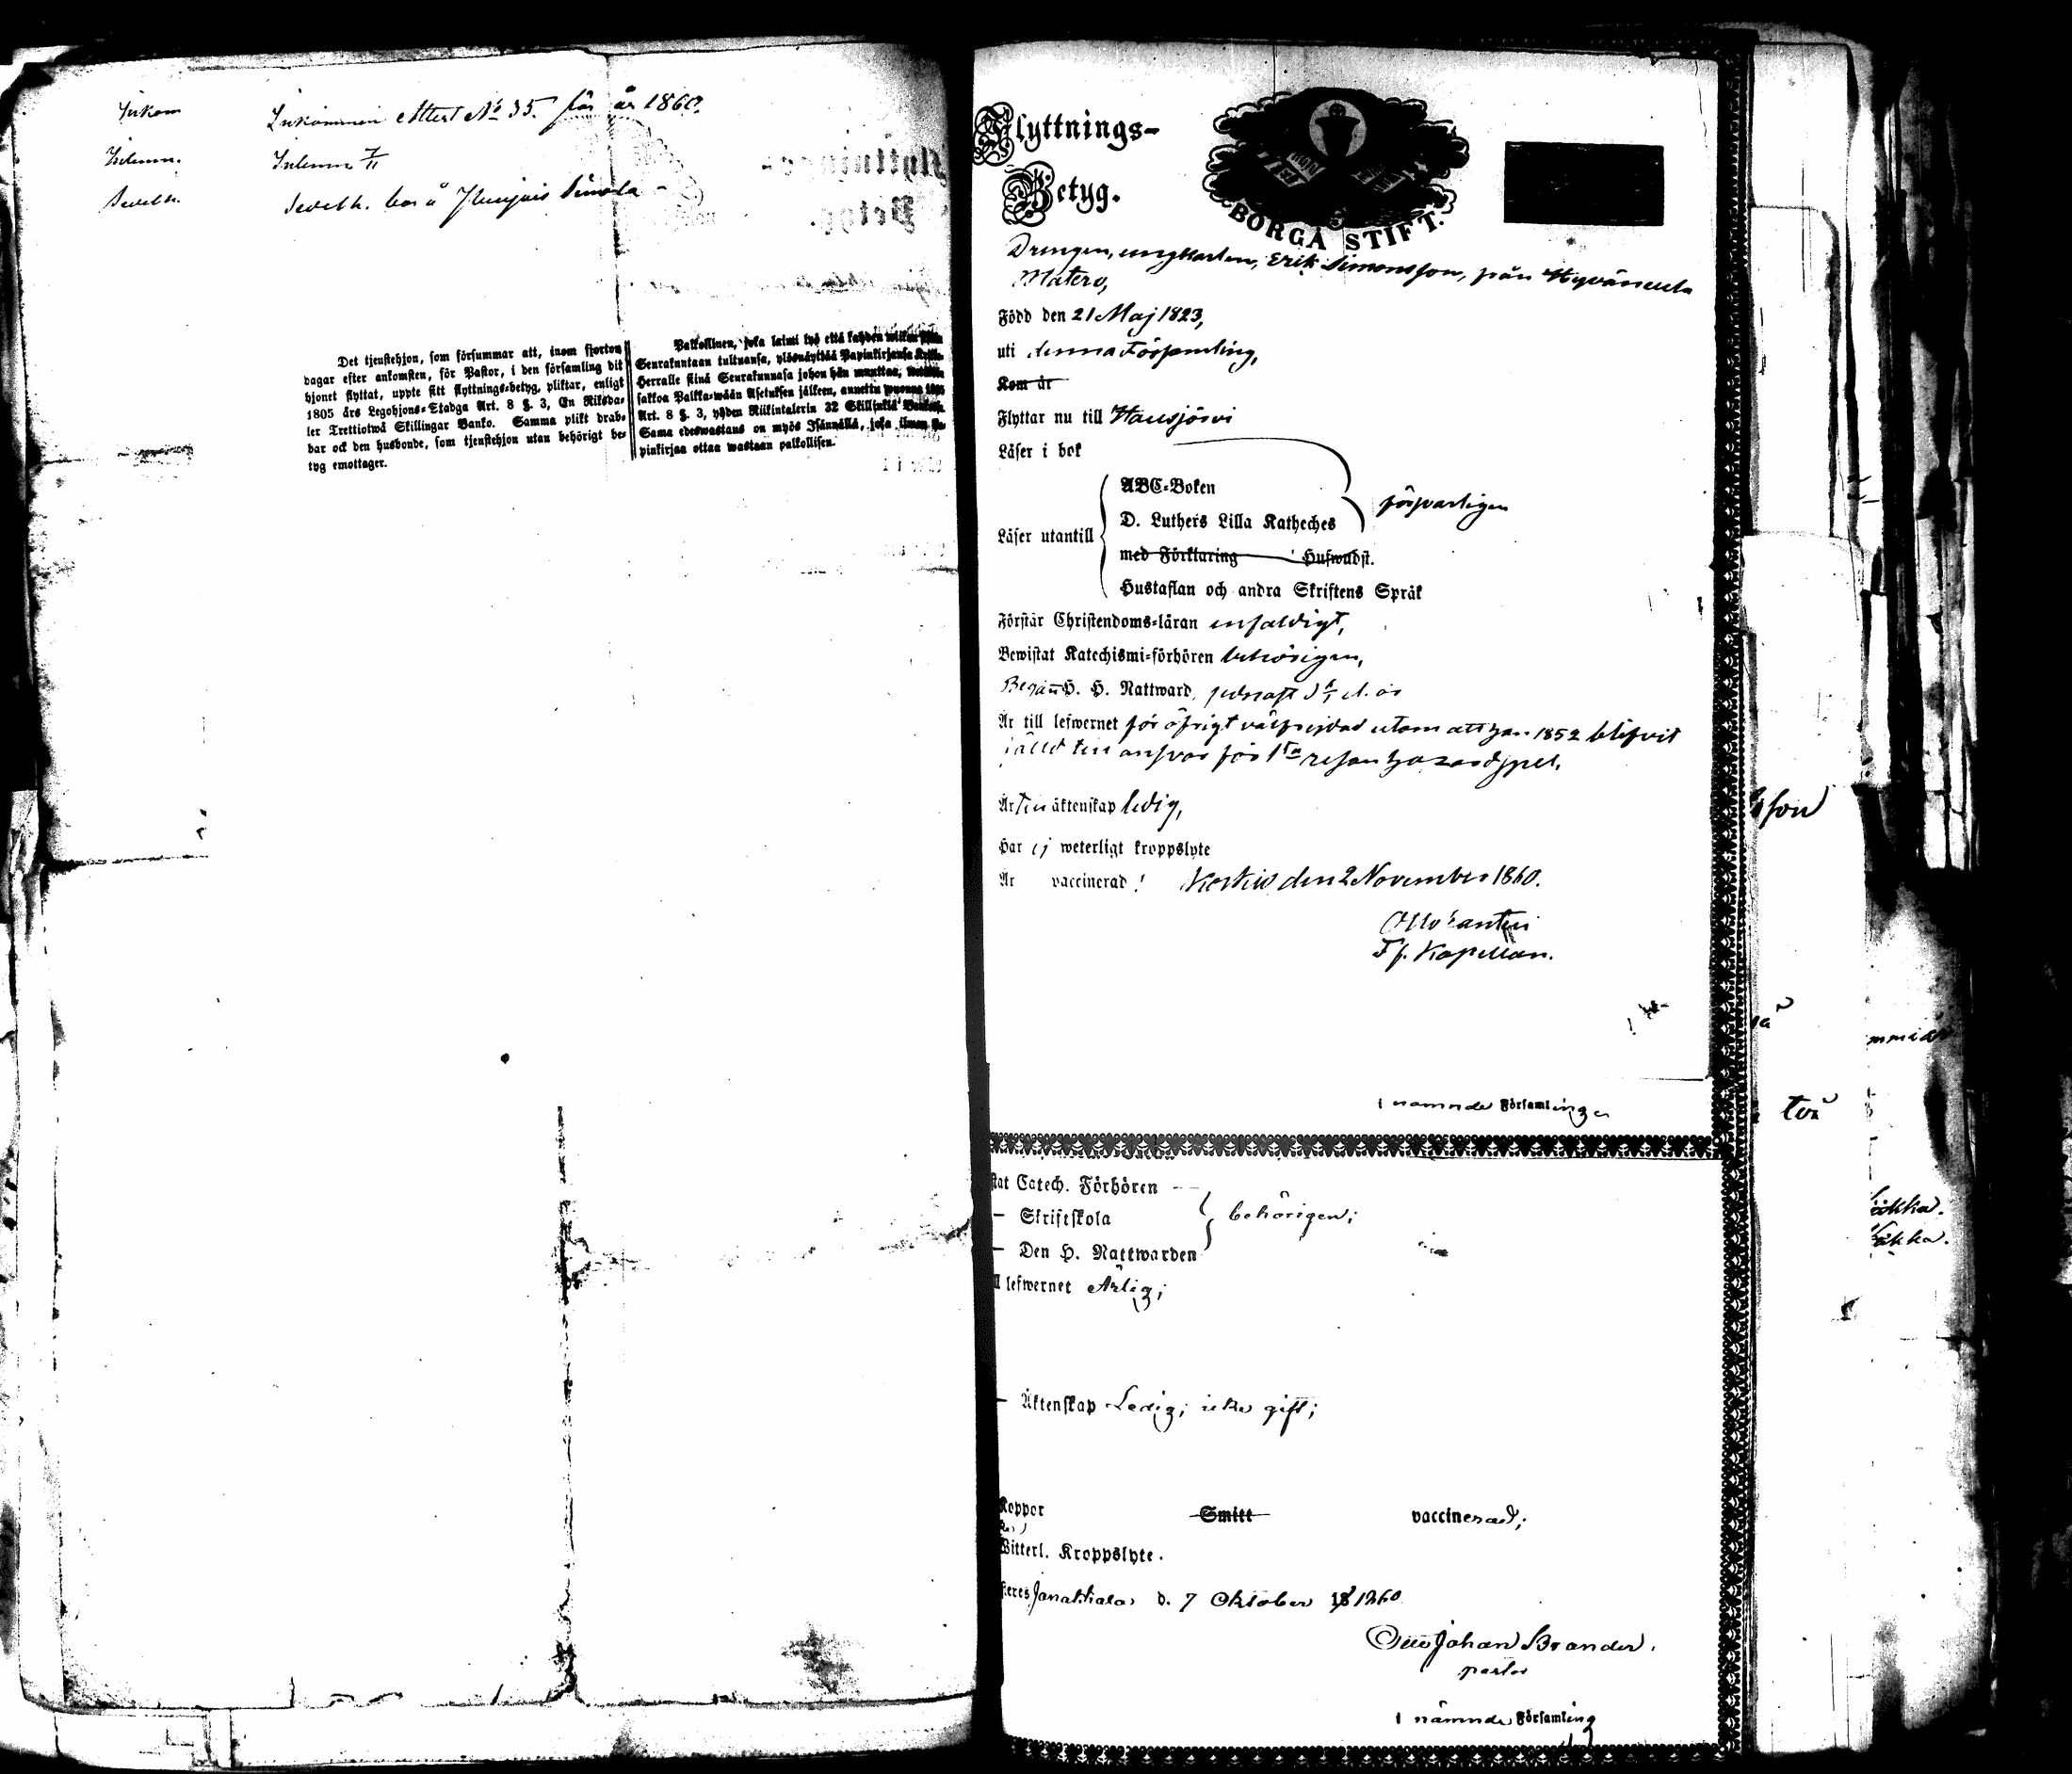 Inkom
Inkommen Attest No 35. för år 1860.
Inlemn.
Inlemn 7/11
Sedeth. bor å
Det tjenstehjon, som försummar att, inom fjorton
dagar efter ankomsten, för Pastor, i den församling dit
hjonet flyttat, uppte sitt flyttnings-betyg, pliktar, enligt
1805 års Legohjons-Stadga Art. 8 §. 3, En Riksda-
ler Trettiotwå Skillingar Banko. Samma plikt drab-
bar ock den husbonde, som tjenstehjon utan behörigt be-
tyg emottager.
Palkollinen, joka laimi lyö että kahden wiikon
Seurakuntaan tultuansa, ylösnäyttää Papinkirjansa
Herralle siinä Seurakunnasa johon hän muuttaa,
sakkoa Palkka-wään Asetuksen jälkeen, annettu wuonna 1805
Art. 8 §. 3, yhden Riikintalerin 32 Skillinkiä
Sama edeswastaus on myös Isännällä, joka ilman Pa-
pinkirjaa ottaa wastaan palkollisen.
Flyttnings-
Betyg.
BORGÅ STIFT.
Drengen, ungkarlen, Erik Simonsson, från Hyväneula
Matero,
Född den 21 Maj 1823,
uti denna Församling,
Kom år
Flyttar nu till Hausjärvi
Läser i bok
ABC-Boken
D. Luthers Lilla Katheches
försvarligen
Läser utantill
med Förklaring Hufwudst.
Hustaflan och andra Skriftens Språk
Förstår Christendoms-läran enfaldigt,
Bewistat Katechismi-förhören behörigen,
Begått H. H. Nattward, sednast d. år
Är till lefwernet för öfrigt välfrejdad utom att han 1852 blifvit
fälld till ansvar för 1sta resan hazardspel.
Är till äktenskap ledig,
Har ej weterligt kroppslyte
Är vaccinerad! den 2 November 1860.
Tf. Kapellan.
i nämnde Församlinge
stat Catech. Förhören
— Skriftskola
behörigen;
— Den H. Nattwarden
ll lefwernet Ärlig;
— Äktenskap Ledig; icke gift;
Koppor Smitt vaccinerad;
Witterl. Kroppslyte.
teres Janakkala d. 7 Oktober 18 1860
Otto Johan Brander.
pastor
i nämnde Församling
son
två